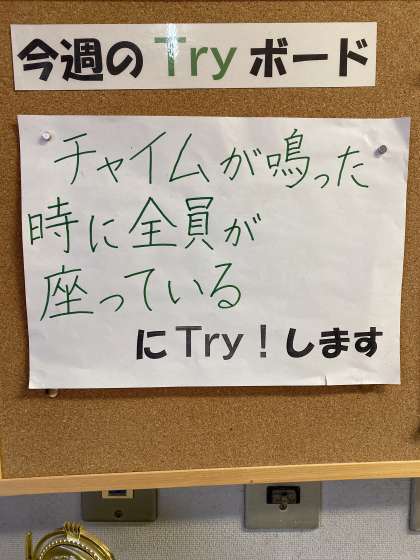 今週のTryボード
チャイムが鳴った
時に全員が
座っている
にTry!します